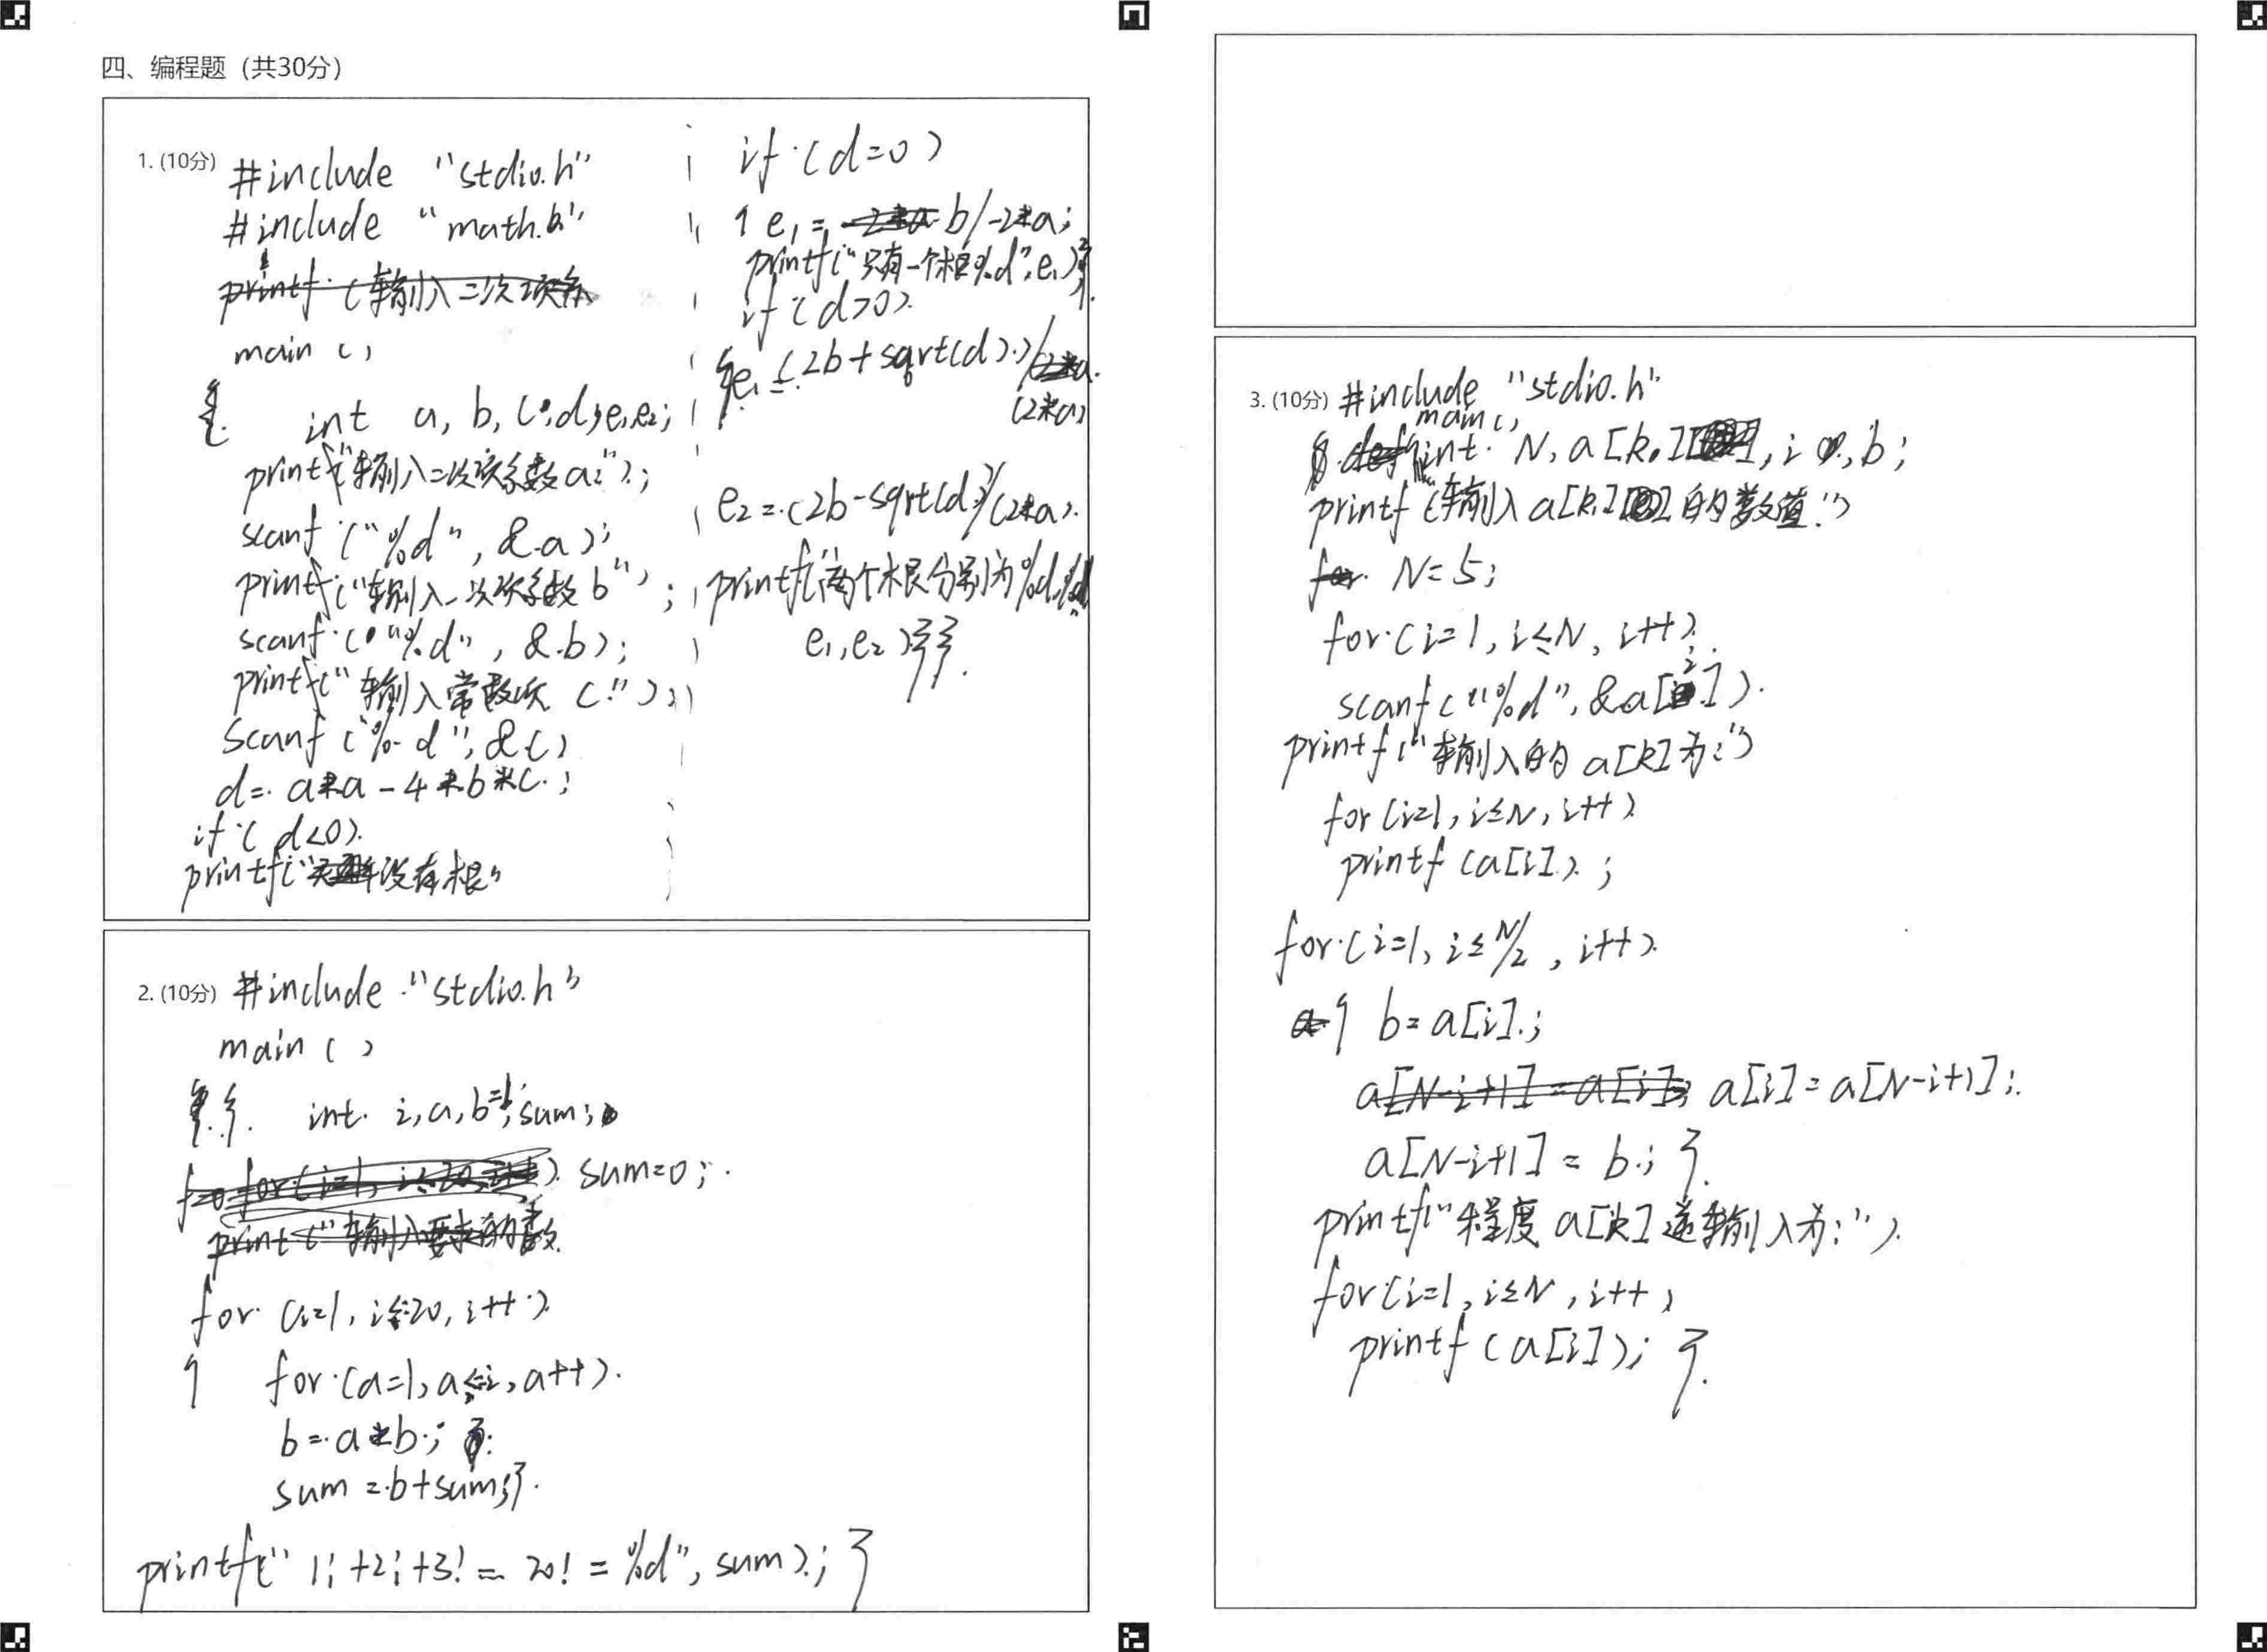 四、编程题（共30分）
1. (10分) #include "stdio.h"
#include "math.h"
main ()
{ int a, b, c, d, e1, e2;
printf("输入二次项系数a:");
scanf ("%d", &a);
printf("输入一次项系数b");
scanf ("%d", &b);
printf("输入常数项 c:");
scanf ("%d", &c)
d = a*a - 4*b*c;
if (d<0)
printf("没有根"
if (d=0)
{ e1 = b/-2*a;
printf("只有一个根%d",e1);}
if (d>0)
{e1 = (2b+sqrt(d))/
(2*a)
e2 = (2b-sqrt(d))/(2*a).
printf("两个根分别为%d,%d
e1,e2)}}
2. (10分) #include "stdio.h"
main ( )
{ int i, a, b=1, sum;
sum=0;
for (i=1, i≤20, i++)
{ for (a=1, a≤i, a++)
b = a*b;
sum = b+sum;}
printf(" 1! +2! +3! … 20! = %d", sum); }
3. (10分) #include "stdio.h"
main()
{ int N, a[k], i, b;
printf("输入a[k]的数值:")
N=5;
for (i=1, i≤N, i++)
scanf("%d", &a[i])
printf("输入的a[k]为:")
for (i=1, i≤N, i++)
printf (a[i]);
for (i=1, i≤N/2, i++)
{ b=a[i];
a[i]=a[N-i+1];
a[N-i+1] = b; }
printf("程度a[k]逆输入为:")
for (i=1, i≤N, i++)
printf (a[i]); }